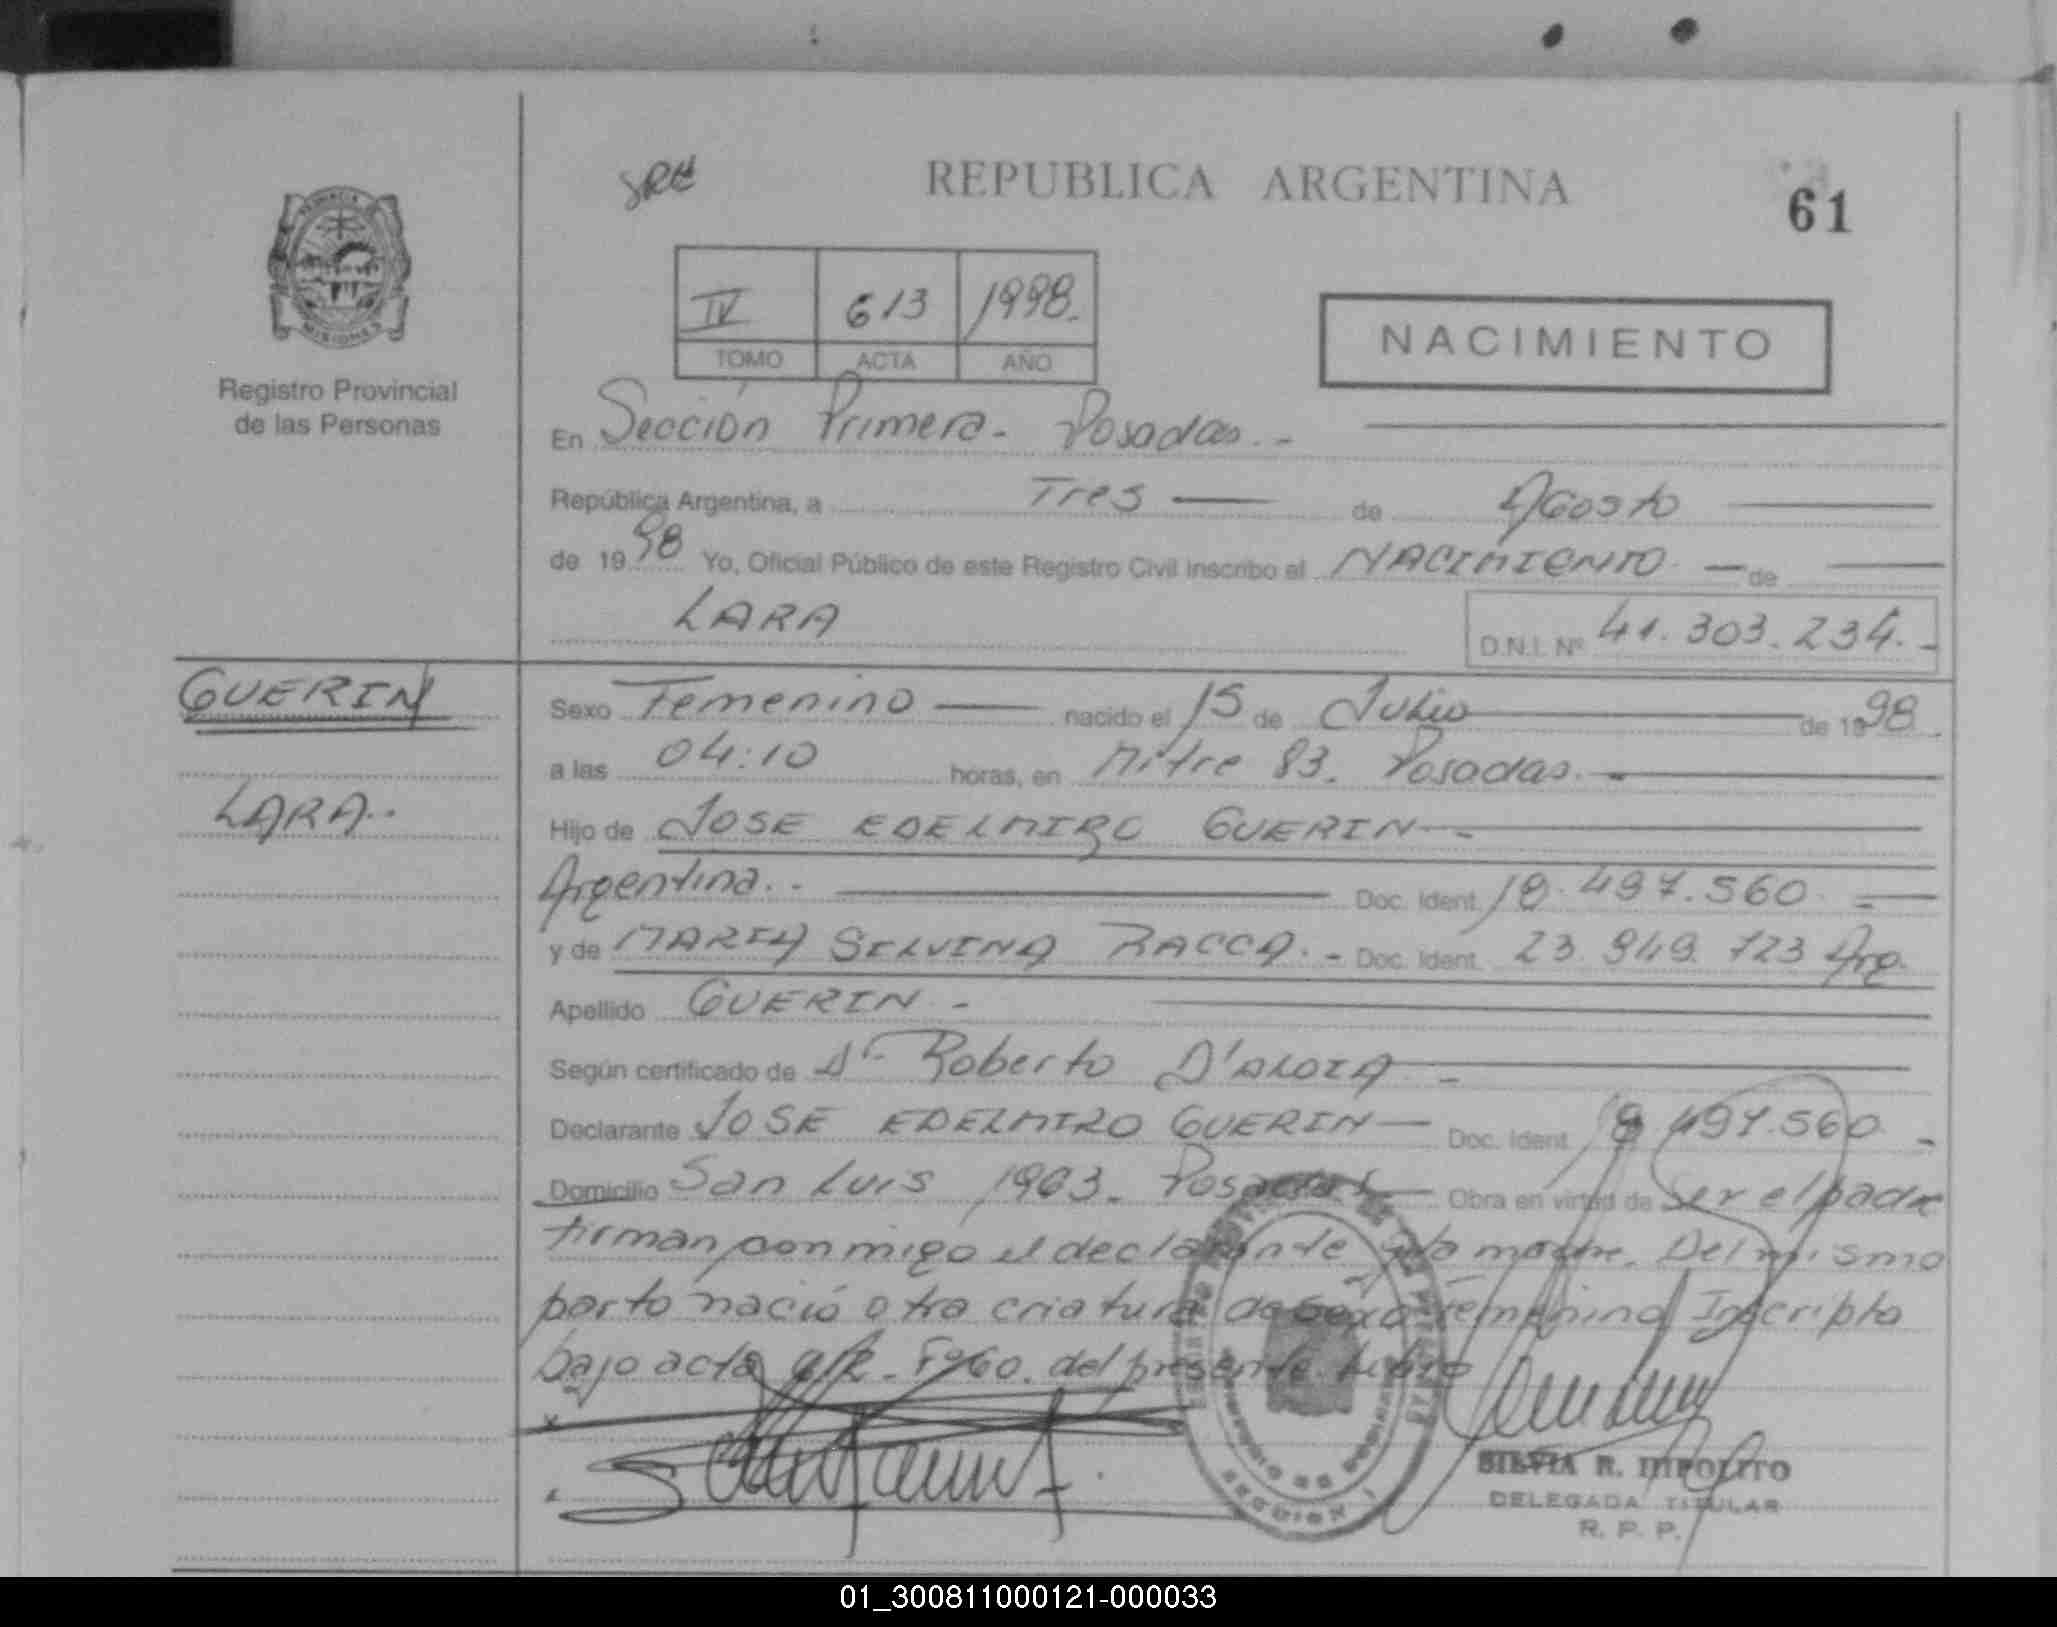 SRH
REPUBLICA ARGENTINA
61
IV 613 1998.
TOMO ACTA AÑO
NACIMIENTO
Registro Provincial
de las Personas
En Sección Primera - Posadas. -
República Argentina, a Tres de Agosto
de 1998 Yo, Oficial Público de este Registro Civil inscribo el NACIMIENTO de
LARA
D.N.I. Nº 41.303.234. -
GUERIN
Sexo Femenino nacido el 15 de Julio de 1998
a las 04:10 horas, en Mitre 83. Posadas. -
LARA..
Hijo de JOSE EDELMIRO GUERIN -
Argentina. . Doc. Ident. 18.497.560 -
y de MARIA SILVINA RACCA. - Doc. Ident. 23.949.723 Arg.
Apellido GUERIN -
Según certificado de Dr Roberto D'ALOIA -
Declarante JOSE EDELMIRO GUERIN Doc. Ident. 18.497.560 -
Domicilio San Luis 1963. Posadas Obra en virtud de Ser el padre
firman conmigo el declarante y la madre. Del mismo
parto nació otra criatura de sexo femenino Inscripta
bajo acta 612 - Fº 60. del presente Libro
SILVIA R. HIPOLITO
DELEGADA TITULAR
R. P. P.
SECCION 1
01_300811000121-000033